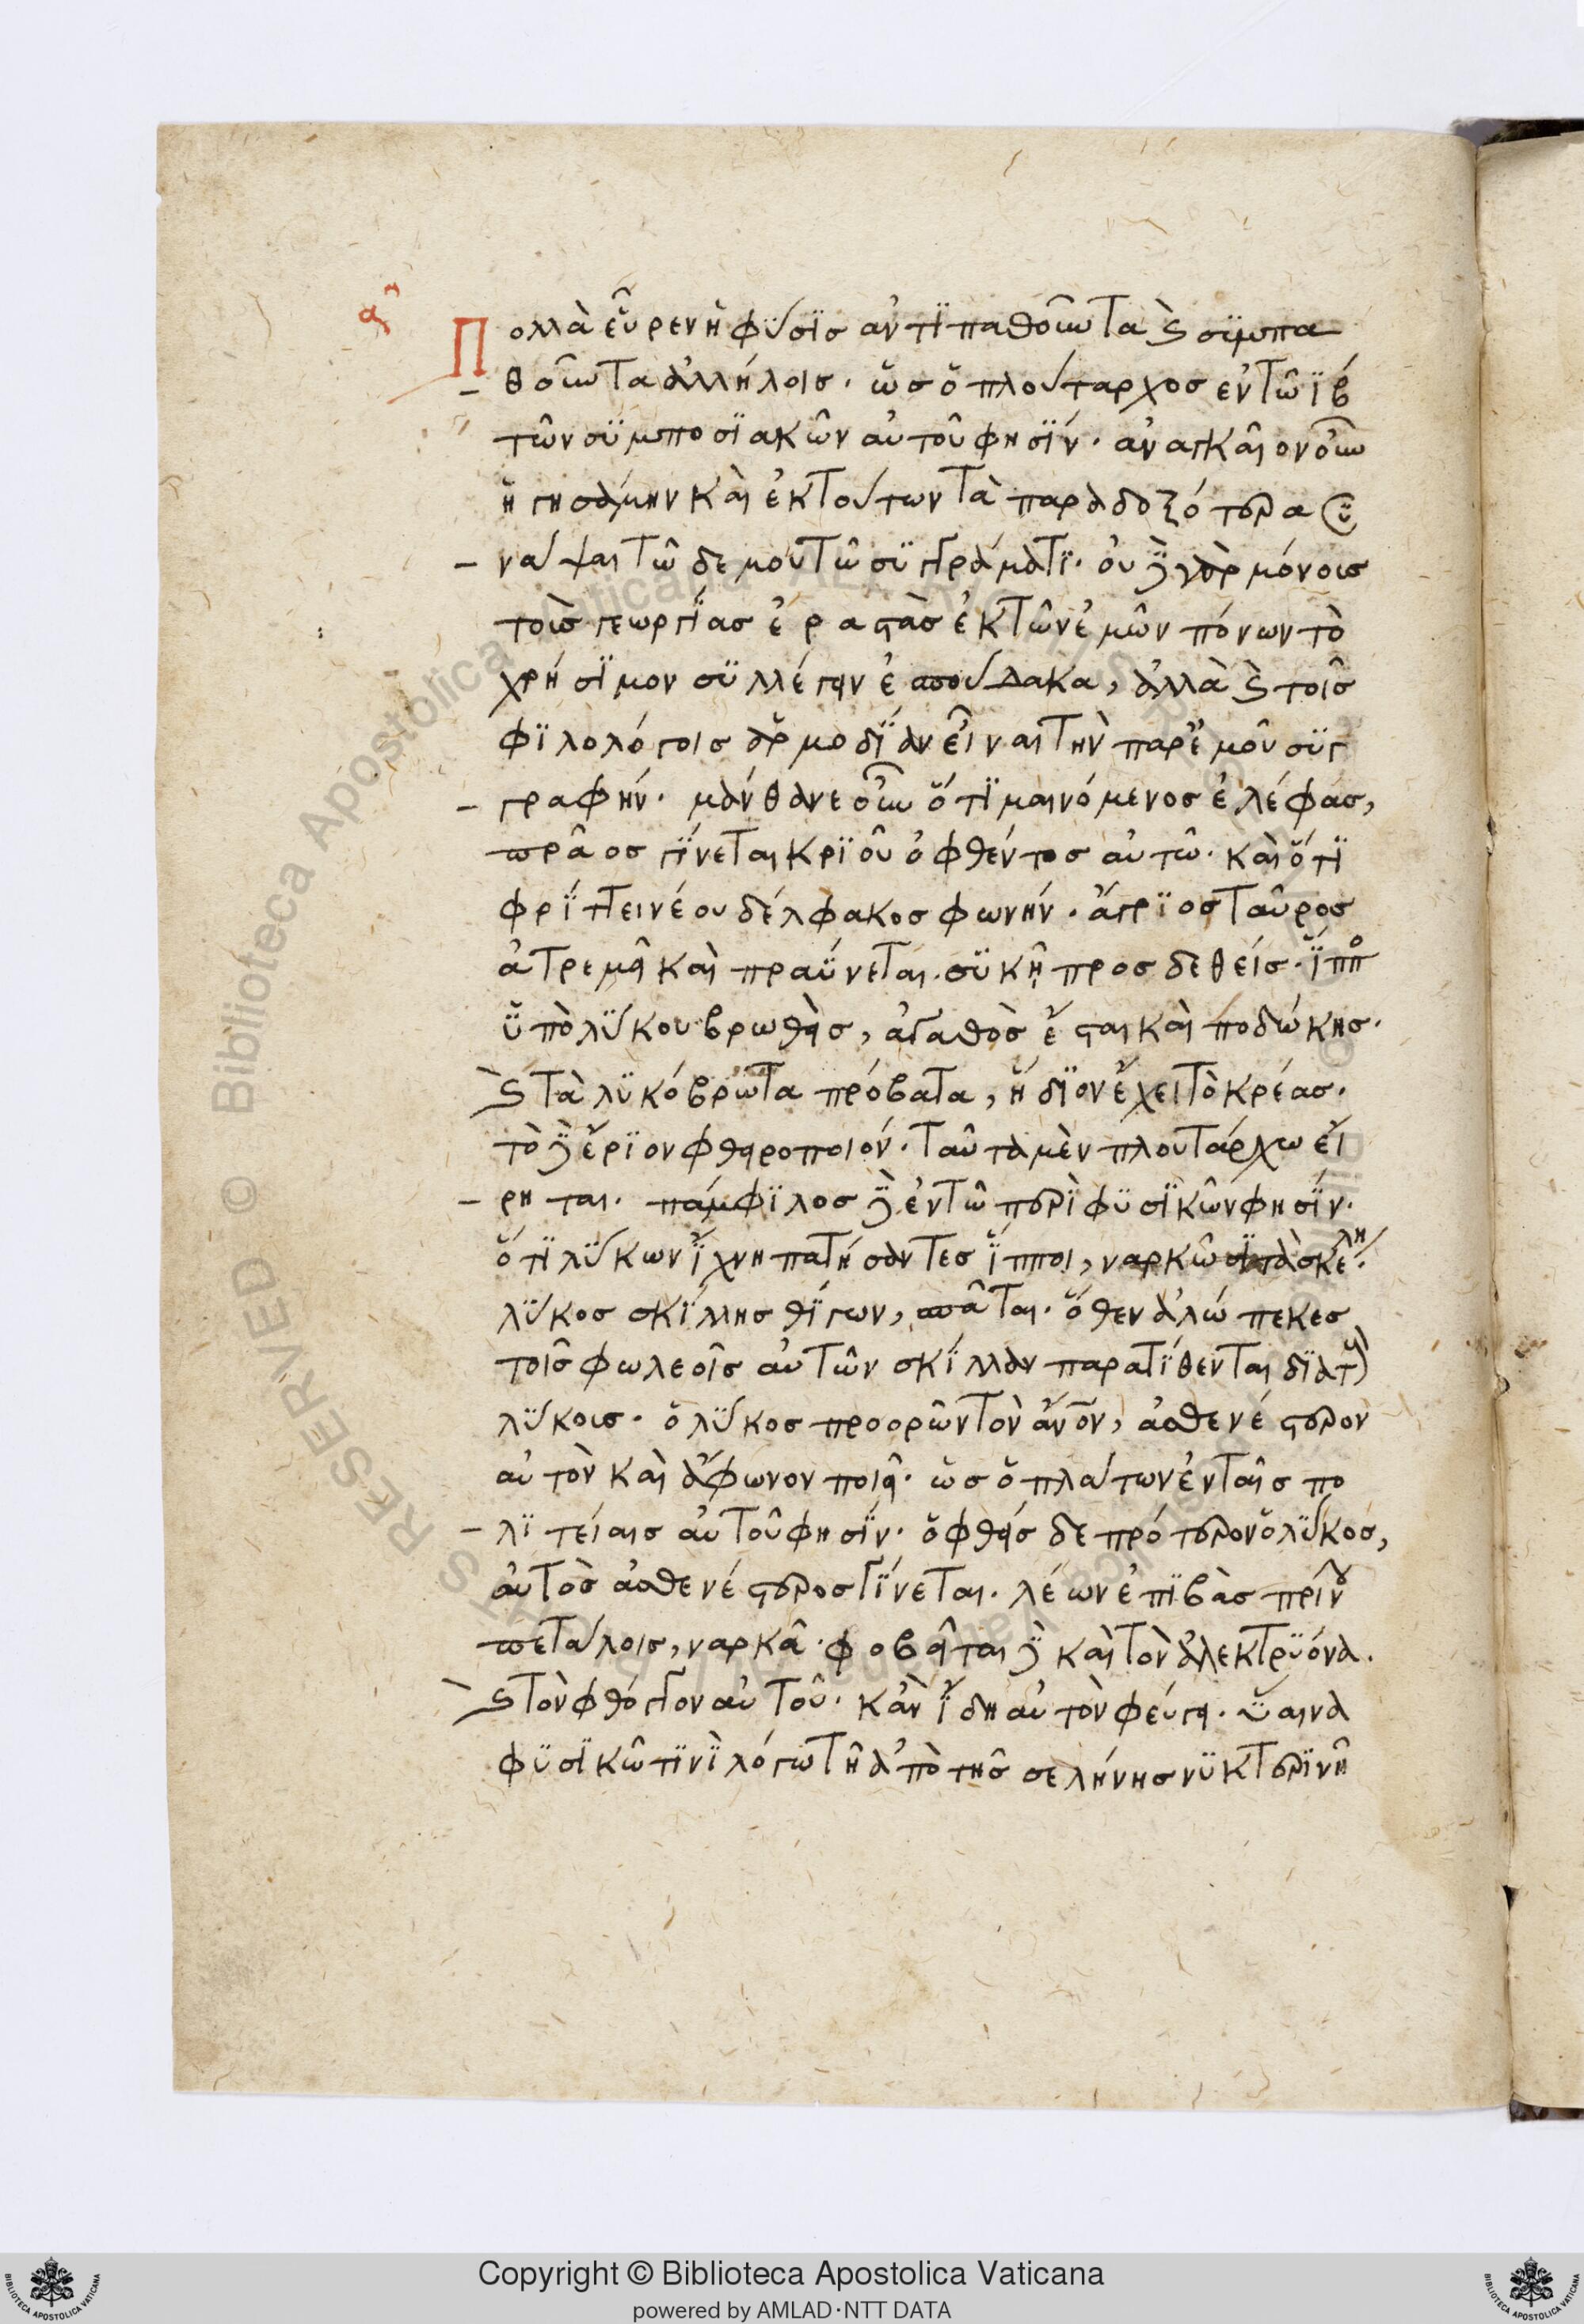 α
Πολλὰ εὗρεν ἡ φύσϊς ἀντϊπαθοῦντα καὶ σϋμπα
θοῦντα ἀλλήλοις· ὡς ὁ πλούταρχος ἐν τῶ ϊβ
τῶν σϋμποσϊακῶν αὐτοῦ φησΐν· ἀναγκαῖον οὖν
ἡγησάμην καὶ ἐκ τούτων τὰ παραδοξότερα συ
νάψαι τῶδε μου τῶ σϋγγράματϊ· οὐ γὰρ μόνοις
τοῖς γεωργΐας ἐραστὰς ἐκ τῶν ἐμῶν πόνων τὸ
χρήσϊμον σϋλλέγειν ἐσπούδακα, ἀλλὰ καὶ τοῖς
φϊλολόγοις ἁρμοδΐαν εἶναι τὴν παρ' ἐμοῦ σϋγ
γραφήν. μάνθανε οὖν ὅτϊ μαινόμενος ἐλέφας,
πρᾶος γΐνεται κρϊοῦ ὀφθέντος αὐτῶ· καὶ ὅτϊ
φρΐττει νέου δέλφακος φωνήν. ἄγρϊος ταῦρος
ἀτρεμεῖ καὶ πραΰνεται. σϋκῆ προσδεθείς. ἵππο
ὑπὸ λΰκου βρωθεὶς, ἀγαθὸς ἔσται καὶ ποδώκης.
καὶ τὰ λϋκόβρωτα πρόβατα, ἥδϊον ἔχει τὸ κρέας.
τὸ δὲ ἔρϊον φθειροποιόν. ταῦτα μὲν πλουτάρχω εἴ
ρηται. πάμφϊλος δὲ ἐν τῶ περὶ φϋσϊκῶν φησΐν.
ὅτϊ λΰκων ἴχνη πατήσαντες ἵπποι, ναρκῶσϊ τὰ σκέλη.
λΰκος σκΐλλης θϊγων, σπᾶται. ὅθεν ἀλώπεκες
τοῖς φωλεοῖς αὐτῶν σκΐλλαν παρατΐθενται δϊὰ τοὺς
λΰκοις. ὁ λΰκος προορῶν τὸν ἄνον, ἀσθενέστερον
αὐτὸν καὶ ἄφωνον ποιεῖ. ὡς ὁ πλάτων ἐν ταῖς πο
λϊτείαις αὐτοῦ φησΐν. ὀφθεὶς δε πρότερον ὁ λΰκος,
αὐτὸς ἀσθενέστερος γΐνεται. λέων ἐπϊβὰς πρΐνου
πετάλοις, ναρκᾶ. φοβεῖται δὲ καὶ τὸν ἀλεκτρϋόνα.
καὶ τὸν φθόγγον αὐτοῦ. κἂν ἴδη αὐτὸν φεύγει. ὕαινα
φϋσϊκῶ τϊνϊ λόγω τῆ ἀπὸ τῆς σελήνης νϋκτερϊνῆ
Biblioteca Apostolica Vaticana
Copyright © Biblioteca Apostolica Vaticana
powered by AMLAD·NTT DATA